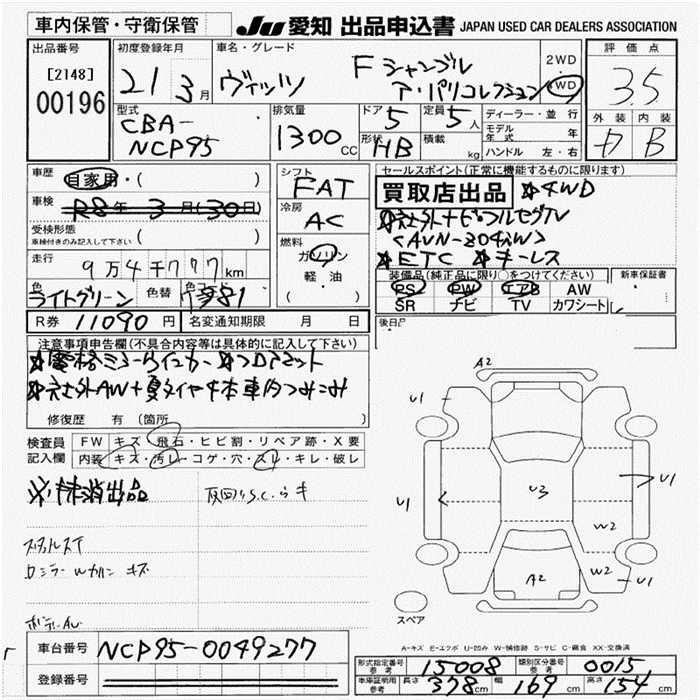 車内保管・守衛保管
JU 愛知 出品申込書 JAPAN USED CAR DEALERS ASSOCIATION
出品番号
[2148]
00196
初度登録年月
21 3月
車名・グレード
ヴィッツ
F シャンブル
ア・パリコレクション
2WD
4WD
評価点
3.5
外装 内装
B
型式
CBA-
NCP95
排気量
1300 CC
ドア 5
形状 HB
定員 5人
積載 kg
ディーラー・並行
モデル年式 年
ハンドル 左・右
車歴 自家用・( )
車検 R8年 3月(30日)
受検形態
車検付きのみ記入して下さい ( )
走行
9万4千777km
色 ライトグリーン 色替
シフト
FAT
冷房
AC
燃料
ガソリン
軽・油
( )
セールスポイント(正常に機能するものに限ります)
買取店出品 ☆4WD
☆社外ナビフルセグTV
☆ETC ☆キーレス
装備品(純正品に限り○をつけてください)
PS PW エアB AW
SR ナビ TV カワシート
新車保証書
後日
R券 11090円
名変通知期限 月 日
注意事項申告欄(不具合内容等は具体的に記入して下さい)
☆社外AW+夏タイヤ4本車内つみこみ
修復歴 有 (箇所 )
検査員記入欄
FW キズ・飛石・ヒビ割・リペア跡・X要
内装 キズ・汚レ・コゲ・穴・スレ・キレ・破レ
※抹消出品
A2
U1 U1
U1 U3 U1
W2
W2 U1
A2
スペア
A-キズ E-エクボ U-凹み W-補修跡 S-サビ C-腐食 XX-交換済
車台番号 NCP95-0049277
登録番号
形式指定番号 参考 15008
類別区分番号 参考 0015
車庫証明用 参考 長さ 378cm 幅 169cm 高さ 154cm